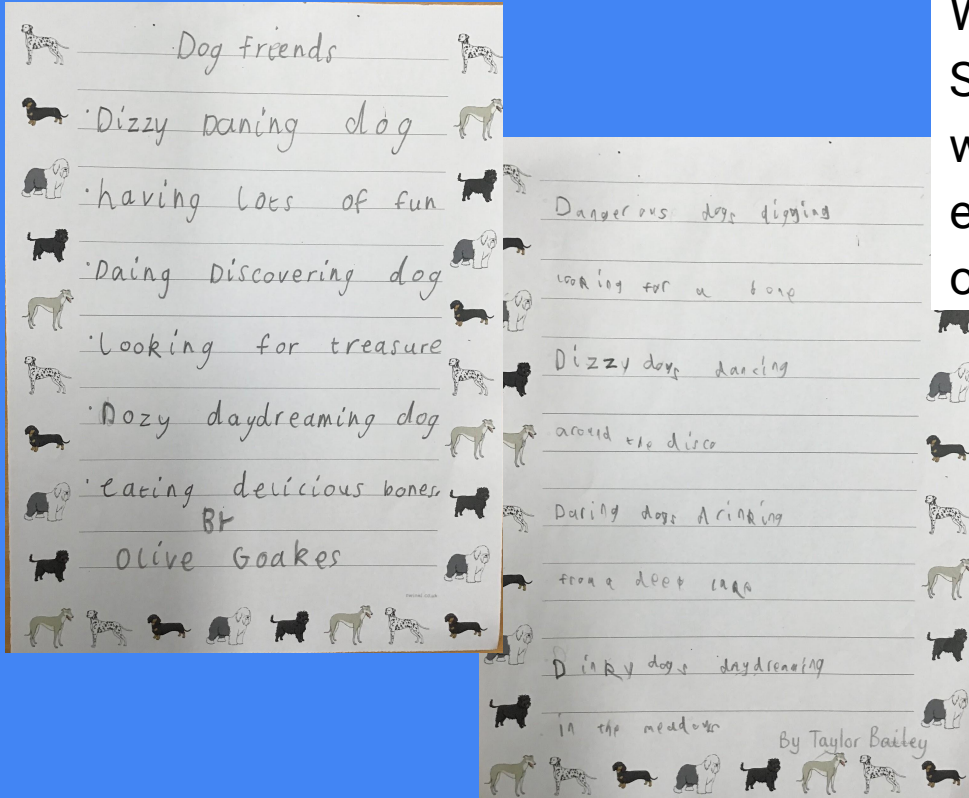 Dog friends
Dizzy Daning dog
having lots of fun
Daing Discovering dog
looking for treasure
Dozy daydreaming dog
eating delicious bones,
BY
Olive Goakes
Dangerous dogs digging
looking for a bone
Dizzy dogs dancing
around the disco
Daring dogs drinking
from a deep lake
Dinky dogs daydreaming
in the meadows
By Taylor Bailey
W
S
w
e
c